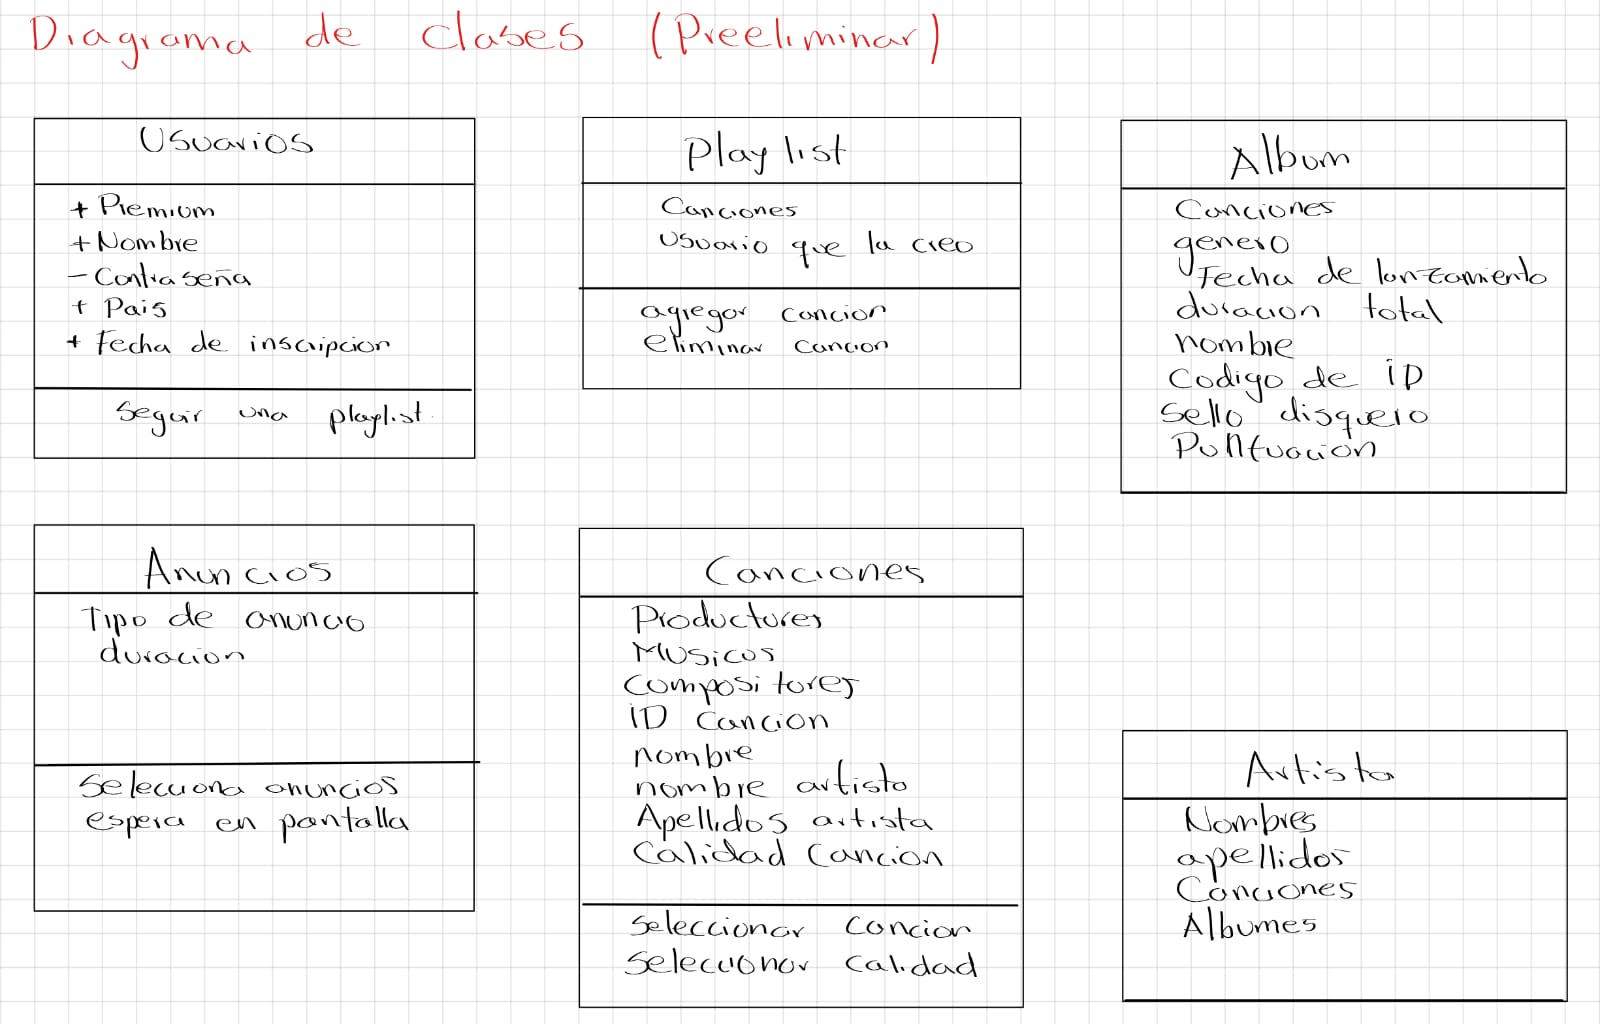 Diagrama de clases (Preeliminar)
Usuarios
+ Premium
+ Nombre
- Contraseña
+ Pais
+ Fecha de inscripcion
Seguir una playlist.
Play list
Canciones
Usuario que la creo
agregar cancion
eliminar cancion
Album
Canciones
genero
Fecha de lanzamiento
duracion total
nombre
Codigo de ID
Sello disquero
Puntuacion
Anuncios
Tipo de anuncio
duracion
Selecciona anuncios
espera en pantalla
Canciones
Productores
Musicos
Compositores
ID Cancion
nombre
nombre artista
Apellidos artista
Calidad Cancion
Seleccionar Cancion
Seleccionar Calidad
Artista
Nombres
apellidos
Canciones
Albumes